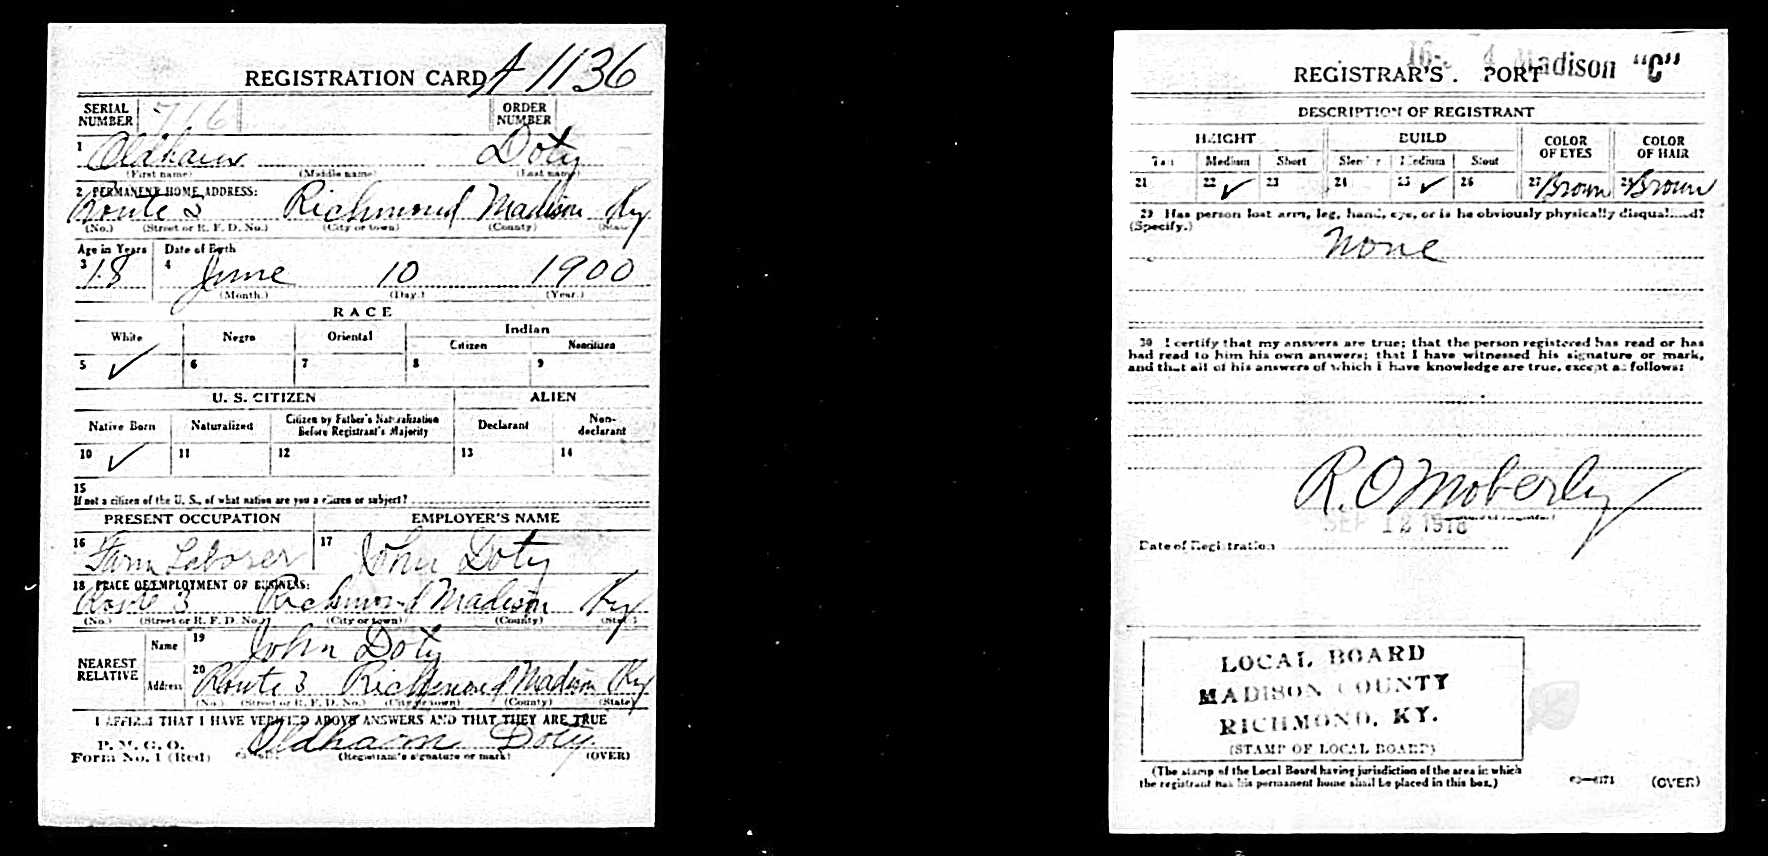 REGISTRATION CARD A 1136
SERIAL NUMBER 716 ORDER NUMBER
1 Oldham Doty
(First name) (Middle name) (Last name)
2 PERMANENT HOME ADDRESS:
Route 3 Richmond Madison Ky
(No.) (Street or R. F. D. No.) (City or town) (County) (State)
Age in Years Date of Birth
3 18 4 June 10 1900
(Month.) (Day.) (Year.)
RACE
White Negro Oriental Indian
Citizen Noncitizen
5 ✓ 6 7 8 9
U. S. CITIZEN ALIEN
Native Born Naturalized Citizen by Father's Naturalization Before Registrant's Majority Declarant Non-declarant
10 ✓ 11 12 13 14
15
If not a citizen of the U. S., of what nation are you a citizen or subject?
PRESENT OCCUPATION EMPLOYER'S NAME
16 Farm Laborer 17 John Doty
18 PLACE OF EMPLOYMENT OR BUSINESS:
Route 3 Richmond Madison Ky
(No.) (Street or R. F. D. No.) (City or town) (County) (State)
NEAREST RELATIVE Name 19 John Doty
Address 20 Route 3 Richmond Madison Ky
(No.) (Street or R. F. D. No.) (City or town) (County) (State)
I AFFIRM THAT I HAVE VERIFIED ABOVE ANSWERS AND THAT THEY ARE TRUE
P. M. G. O.
Form No. 1 (Red) Oldham Doty
(Registrant's signature or mark) (OVER)
Madison "C"
REGISTRAR'S PORT
DESCRIPTION OF REGISTRANT
HEIGHT BUILD COLOR OF EYES COLOR OF HAIR
Tall Medium Short Slender Medium Stout
21 22 ✓ 23 24 25 ✓ 26 27 Brown 28 Brown
29 Has person lost arm, leg, hand, eye, or is he obviously physically disqualified?
(Specify.) None
30 I certify that my answers are true; that the person registered has read or has
had read to him his own answers; that I have witnessed his signature or mark,
and that all of his answers of which I have knowledge are true, except as follows:
R. O Moberly
SEP 12 1918
Date of Registration
LOCAL BOARD
MADISON COUNTY
RICHMOND, KY.
(STAMP OF LOCAL BOARD)
(The stamp of the Local Board having jurisdiction of the area in which
the registrant has his permanent home shall be placed in this box.)
(OVER)